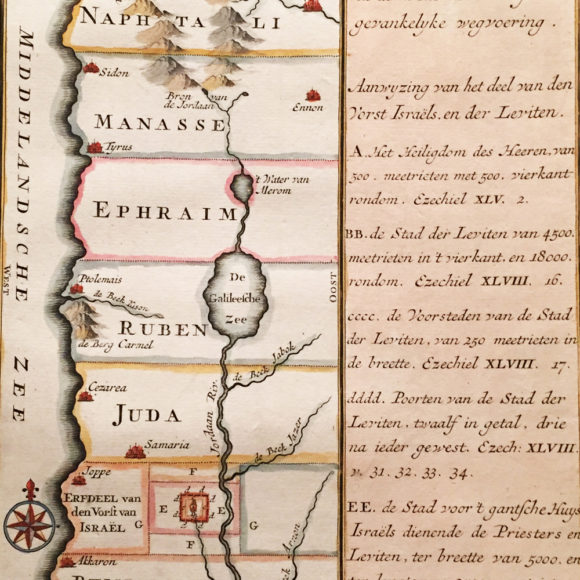 NAPHTALI
MIDDELANDSCHE ZEE
WEST
Sidon
Bron van
de Jordaan
Ennon
MANASSE
Tyrus
't Water van
Merom
EPHRAIM
De
Galileesche
Zee
OOST
Ptolemais
de Beek Kison
RUBEN
de Berg Carmel
Jordaan Riv.
de Beek Jabok
Cezarea
JUDA
Samaria
de Beek Jazer
Joppe
F
ERFDEEL van
den Vorst van
ISRAËL
G
E
d d d
E
G
F
Arnon
Akkaron
gevankelyke wegvoering.
Aanwyzing van het deel van den
Vorst Israëls, en der Leviten.
A. Het Heiligdom des Heeren, van
500. meetrieten met 500. vierkant
rondom. Ezechiel XLV. 2.
BB. de Stad der Leviten van 4500.
meetrieten in 't vierkant. en 18000.
rondom. Ezechiel XLVIII. 16.
cccc. de Voorsteden van de Stad
der Leviten, van 250 meetrieten in
de breette. Ezechiel XLVIII. 17.
dddd. Poorten van de Stad der
Leviten, twaalf in getal, drie
na ieder gewest. Ezech: XLVIII.
v. 31. 32. 33. 34.
EE. de Stad voor 't gantsche Huys
Israëls dienende de Priesters en
Leviten, ter breette van 5000. en